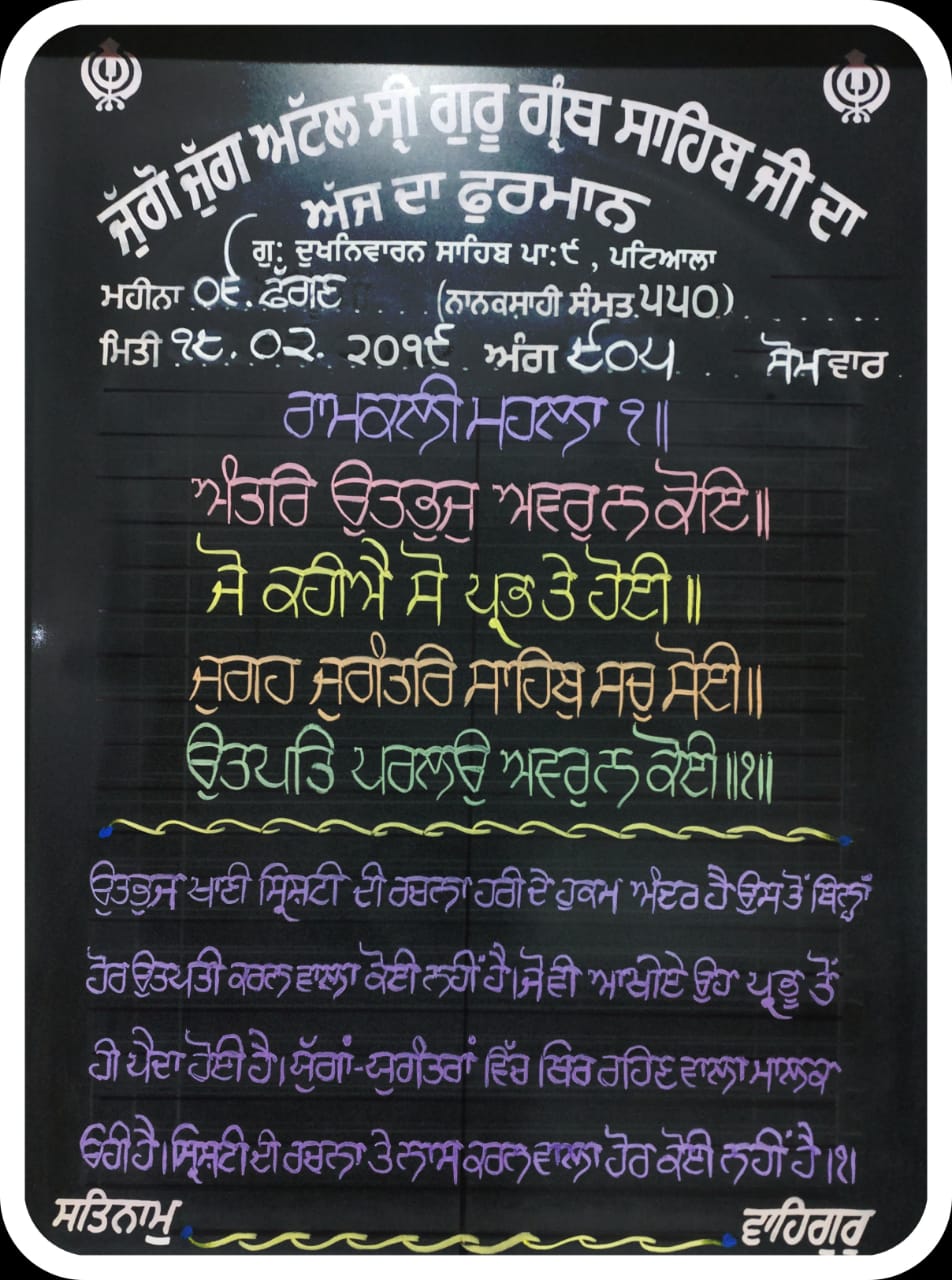 ਜੁੱਗੋ ਜੁੱਗ ਅਟੱਲ ਸ੍ਰੀ ਗੁਰੂ ਗ੍ਰੰਥ ਸਾਹਿਬ ਜੀ ਦਾ
ਅੱਜ ਦਾ ਫੁਰਮਾਨ
ਗੁ: ਦੁਖਨਿਵਾਰਨ ਸਾਹਿਬ ਪਾ:੯ , ਪਟਿਆਲਾ
ਮਹੀਨਾ ੦੬. ਫੱਗਣ (ਨਾਨਕਸ਼ਾਹੀ ਸੰਮਤ ੫੫੦)
ਮਿਤੀ ੧੮.੦੨. ੨੦੧੯ ਅੰਗ ੯੦੫ ਸੋਮਵਾਰ
ਰਾਮਕਲੀ ਮਹਲਾ ੧॥
ਅੰਤਰਿ ਉਤਭੁਜੁ ਅਵਰੁ ਨ ਕੋਇ॥
ਜੋ ਕਹੀਐ ਸੋ ਪ੍ਰਭ ਤੇ ਹੋਈ॥
ਜੁਗਹ ਜੁਗੰਤਰਿ ਸਾਹਿਬੁ ਸਚੁ ਸੋਈ॥
ਉਤਪਤਿ ਪਰਲਉ ਅਵਰੁ ਨ ਕੋਈ॥੧॥
ਉਤਭੁਜ ਖਾਣੀ ਸ੍ਰਿਸ਼ਟੀ ਦੀ ਰਚਨਾ ਹਰੀ ਦੇ ਹੁਕਮ ਅੰਦਰ ਹੈ ਉਸ ਤੋਂ ਬਿਨ੍ਹਾਂ
ਹੋਰ ਉਤਪਤੀ ਕਰਨ ਵਾਲਾ ਕੋਈ ਨਹੀਂ ਹੈ।ਜੋ ਵੀ ਆਖੀਏ ਉਹ ਪ੍ਰਭੂ ਤੋਂ
ਹੀ ਪੈਦਾ ਹੋਈ ਹੈ। ਯੁੱਗਾਂ-ਯੁਗੰਤਰਾਂ ਵਿੱਚ ਥਿਰ ਰਹਿਣ ਵਾਲਾ ਮਾਲਕ
ਓਹੀ ਹੈ।ਸ੍ਰਿਸ਼ਟੀ ਦੀ ਰਚਨਾ ਤੇ ਨਾਸ ਕਰਨ ਵਾਲਾ ਹੋਰ ਕੋਈ ਨਹੀਂ ਹੈ।੧।
ਸਤਿਨਾਮੁ ਵਾਹਿਗੁਰੂ